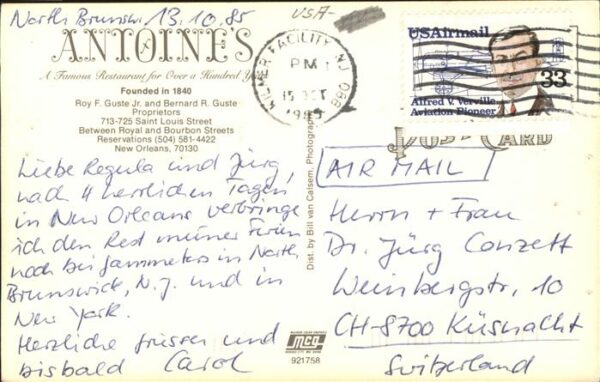 North Brunsw. 13.10.85
USA-
ANTOINE'S
A Famous Restaurant for Over a Hundred Years
Founded in 1840
Roy F. Guste Jr. and Bernard R. Guste
Proprietors
713-725 Saint Louis Street
Between Royal and Bourbon Streets
Reservations (504) 581-4422
New Orleans, 70130
Liebe Regula und Jürg,
nach 4 herrlichen Tagen
in New Orleans verbringe
ich den Rest meiner Ferien
noch bei Jammeters in North
Brunswick, N.J. und in
New York.
Herzliche Grüsse und
bis bald Carol
Dist. by Bill van Calsem, Photographer
mcg
921758
FACILITY, NJ 088
PM
15 OCT
1985
USAirmail
33
Alfred V. Verville
Aviation Pioneer
POST CARD
AIR MAIL
Herrn + Frau
Dr. Jürg Conzett
Weinbergstr. 10
CH-8700 Küsnacht
Switzerland